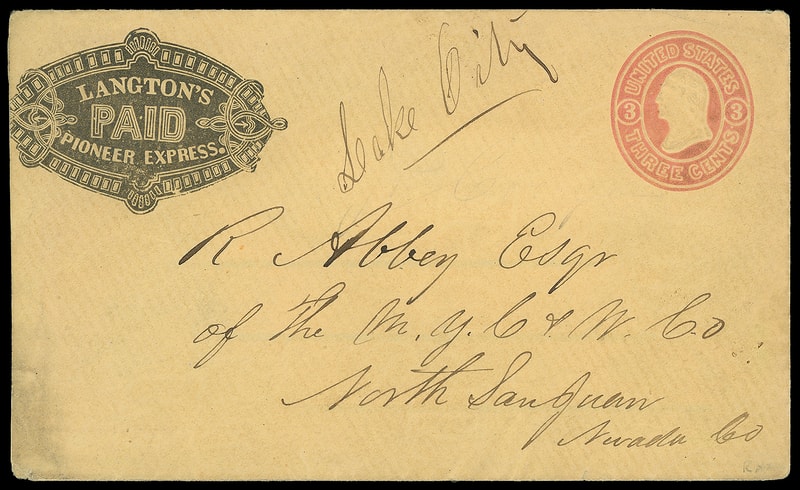 LANGTON'S
PAID
PIONEER EXPRESS.
Lake City
UNITED STATES
3 3
THREE CENTS
R Abbey Esqr
of The M. Y. C & W. Co
North San Juan
Nevada Co